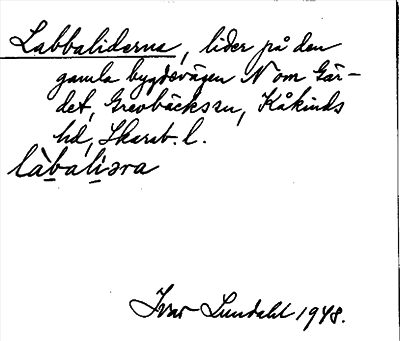 Labbaliderna, lider på den
gamla bygdevägen N om Gär-
det, Grevbäckssn, Kåkinds
hd, Skarab. l.
làbalìəra
Ivar Lundahl 1948.